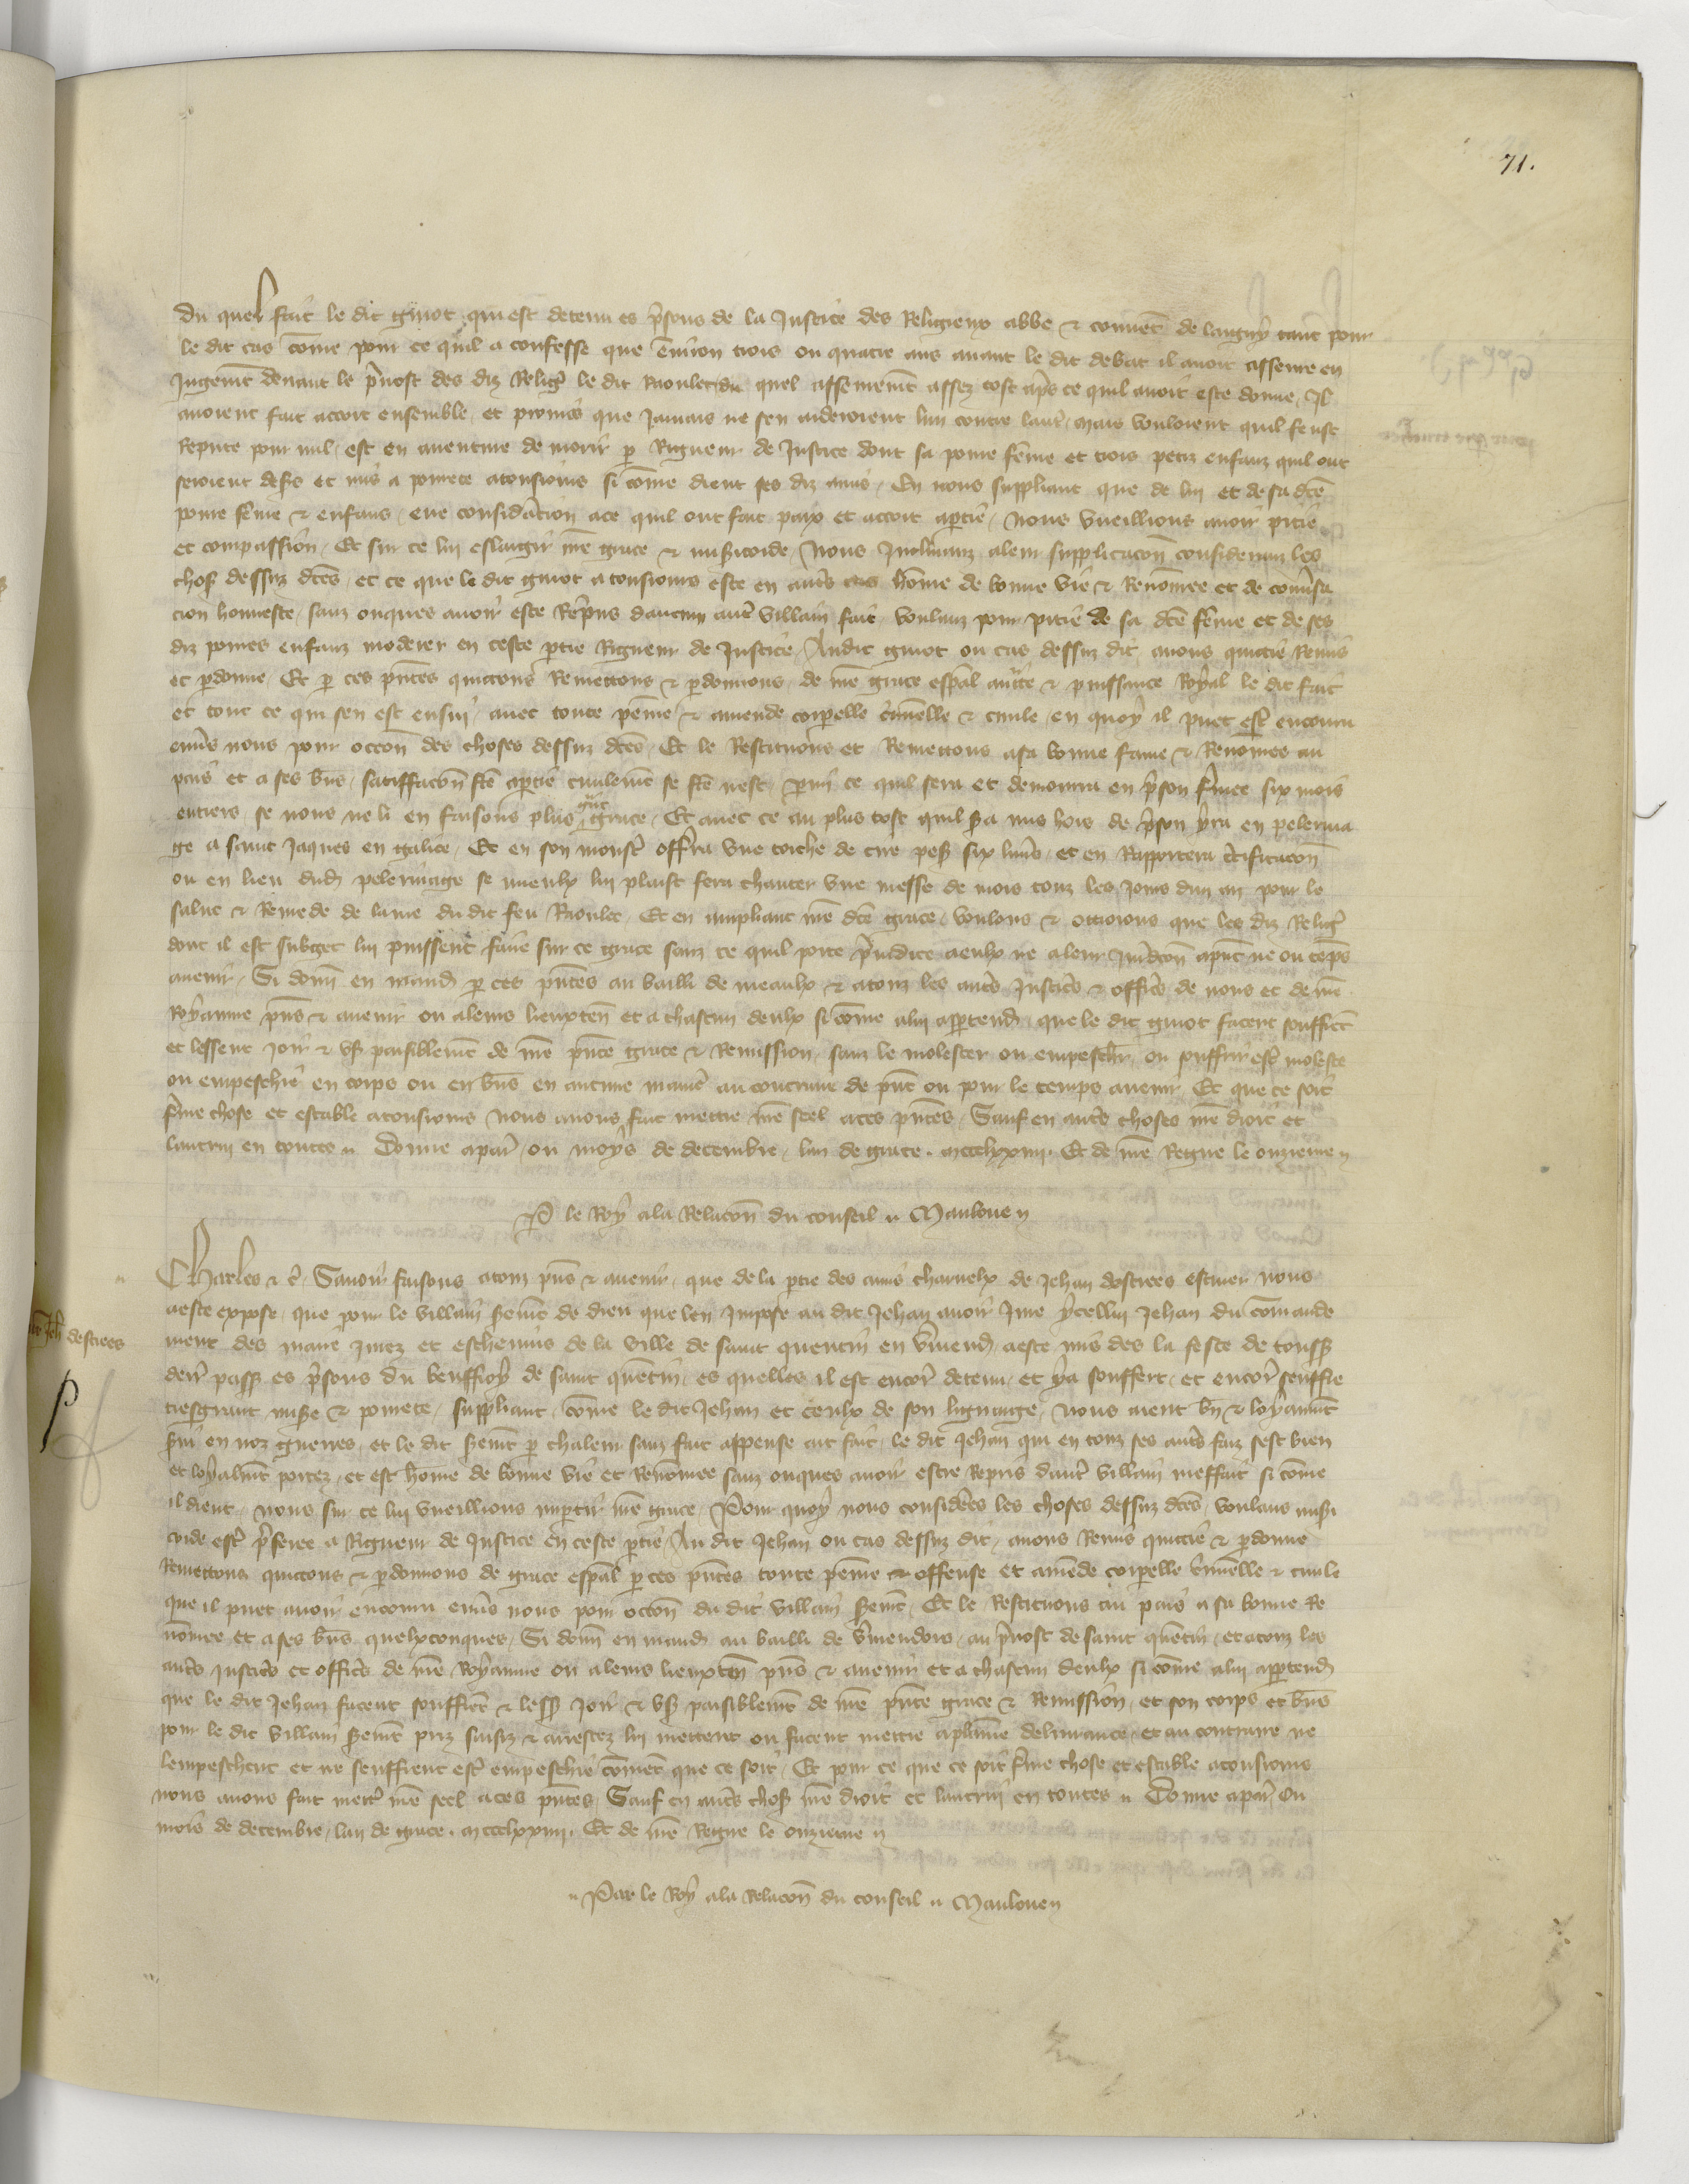 71.
Du quel fait le dit guiot qui est detenu es p̃sons de la Justice des Religieux abbe & couuẽt de laigny tant pour
le dit cas cõme pour ce quil a confesse que ẽuiron trois ou quatre ans auant le dit debat il auoit asseure en
Jugem̃t deuant le p̃uost des diz Relig̃ le dit Raoulet du quel asseurem̃t assez tost ap̃s ce quil auoit este donne Il
auoient fait accort ensemble et promis que Jamais ne sen aideroient lun contre laut̃ mais vouloient quil feust
Repute pour nul est en auenture de morir p Rigueur de Justice dont sa poure fẽme et trois petiz enfanz quil ont
seroient des̃ et mis a pourete atousiours si cõme dient ses diz amis En nous suppliant que de lui et de sa dc̃e
poure fẽme & enfans eue consideracion ace quil ont fait paix et accort aptie Nous vueillions auoir pitie
et compassion Et sur ce lui eslargir nr̃e grace & mis̃icorde Nous Inclinanz aleur supplicacoñ considerans les
chos̃ dessuz dc̃es et ce que le dit guiot a tousiours este en aut̃s cas hõme de bonne vie & Renõmee et de conũsa
cion honneste sanz onques auoir este Rep̃ins daucun aut̃ villain fait voulanz pour pitie de sa dc̃e fẽme et de ses
diz poures enfanz moderer en ceste ptie Rigueur de Justice Audit guiot ou cas dessuz dit auons quictie Remis
et pdonne Et p ces pñtes quictons Remettons & pdonnons de nr̃e grace esp̃al auc̃te & puissance Royal le dit fait
et tout ce qui sen est ensui auec toute peinne & amende corporelle c̃minelle & ciuile en quoy il puet est̃ encouru
enũs nous pour occoñ des choses dessuz dc̃es Et le Restituons et Remettons asa bonne fame & Renõmee au
pais et a ses bñs satisfacoñ fc̃e aptie ciuilem̃t se fc̃e nest parmi ce quil sera et demourra en p̃son f̃mee six mois
entiers se nous ne li en faisons plus g̃nt grace Et auec ce au plus tost quil s̃a mis hors de p̃son yra en pelerina
ge a saint Jaques en galice Et en son moust̃ offr̃ra vne torche de cire pes̃ six liurẽs et en Rapportera c̃tificacoñ
ou en lieu dud̃ pelerinage se mieulx lui plaist fera chanter vne messe de mors touz les Jours dun an pour le
salut & Remede de lame du dit feu Raoulet Et en ampliant nr̃e dc̃e grace voulons & ottroions que les diz Relig̃
dont il est subget lui puissent faire sur ce grace sanz ce quil porte p̃iudice aeulx ne aleur Juridcoñ apñt ne ou tẽps
auenir Si donñ en mand̃ p ces pñtes au bailli de meaulx & atouz les aut̃s Justic̃s & offic̃s de nous et de nr̃e
Royaume pñs & auenir ou aleurs lieuxteñ et a chascun deulx si cõme alui aptend̃ que le dit guiot facent souffreñt
et lessent Joir & vs̃ paisiblem̃t de nr̃e pñte grace & Remission sanz le molester ou empesch̃r ou souffrir est̃ moleste
ou empeschie en corps ou en bñs en aucune manie͂ au contraire de pñt ou pour le temps auenir Et que ce soit
f̃me chose et estable atousiours Nous auons fait mettre nr̃e scel aces pñtes Sauf en aut̃s choses nr̃e droit et
lautrui en toutes Donne apar̃ ou moys de decembre lan de grace mccclxxiiii Et de nr̃e Regne le onzieme
P le Roy ala Relacoñ du conseil Mauloue
Charles & c̃ Sauoir faisons atouz pñs & auenir que de la ptie des amis charnelx de Jehan destrees escuier nous
aeste expose que pour le villain serem̃t de dieu que len Impose au dit Jehan auoir Jure ycellui Jehan du cõmande
ment des maire Jurez et escheuins de la ville de saint quentin en v̂mend̃ aeste mis des la feste de touss̃
den͂r pass̃ es p̃sons du beuffroy de saint quẽtin es quelles il est encor̃ detenu et ya souffert et encor̃ seuffre
tresgrant mis̃e & pourete suppliant cõme le dit Jehan et ceulx de son lignaige Nous aient bñ & loyaum̃t
s̃ui en noz guerres et le dit serem̃t p chaleur sanz fait appense ait fait le dit Jehan qui en touz ses aut̃s faiz sest bien
et loyalm̃t portez et est hõme de bonne vie et Renõmee sanz onques auoir este Repris daut̃ villain meffait si cõme
il dient nous sur ce lui vueillions impartir nr̃e grace Pour quoy nous considerees les choses dessuz dc̃es voulans mis̃i
corde est̃ p̃feree a Rigueur de Justice en ceste ptie Au dit Jehan ou cas dessuz dit auons Remis quictie & pdonne
Remettons quictons & pdonnons de grace esp̃al p ces pñtes toute peinne & offense et amẽde corporelle c̃minelle & ciuile
que il puet auoir encouru enũs nous pour occoñ du dit villain serem̃t Et le Restituons au pais a sa bonne Re
nõmee et a ses bñs quelxconques Si donñ en mand̃ au bailli de v̂mendois au p̃uost de saint quẽtin et atouz les
aut̃s Justic̃s et offic̃s de nr̃e Royaume ou aleurs lieuxteñ pñs & auenir et a chascun deulx si cõme alui aptend̃
que le dit Jehan facent souffreñt & less̃ Joir & vs̃ paisiblem̃t de nr̃e pñte grace & Remission et son corps et bñs
pour le dit villain serem̃t priz saisiz & arrestez lui mettent ou facent mettre aplaine deliurance et au contraire ne
lempeschent et ne seuffrent est̃ empeschie cõmẽt que ce soit Et pour ce que ce soit f̃me chose et estable atousiours
nous auons fait mettr̃ nr̃e seel aces pñtes Sauf en aut̃s chos̃ nr̃e droit et lautrui en toutes Donne apar̃ Ou
mois de decembre lan de grace mccclxxiiii Et de nr̃e Regne le onzieme
Par le Roy ala Relacoñ du conseil Mauloue
Jeh̃ destrees